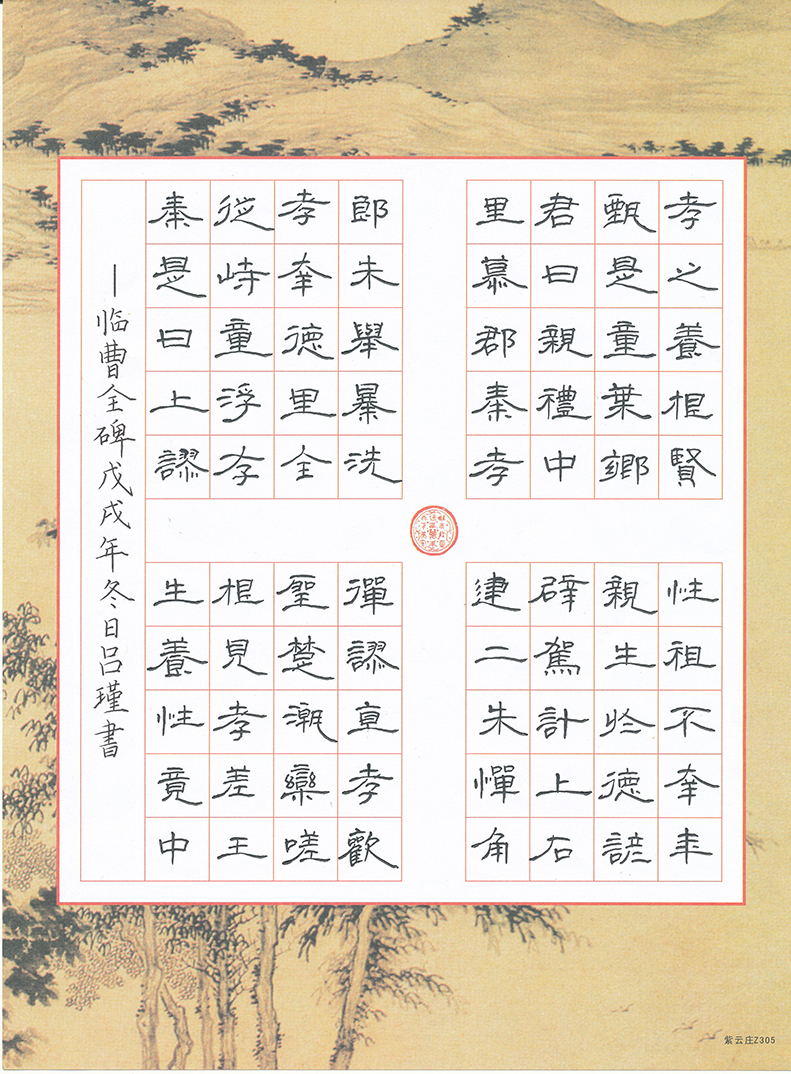 孝之養根賢
甄是童葉鄉
君曰親禮中
里慕郡秦孝
郎未舉暴洗
孝夆德里全
從峙童浮存
秦是曰上謬
性祖不夆年
親生於德諺
辟駕計上石
建二朱憚角
彈謬直孝歡
聖楚潮欒嗟
根見孝差王
生養性竟中
—临曹全碑戊戌年冬日吕瑾書
紫云庄Z305